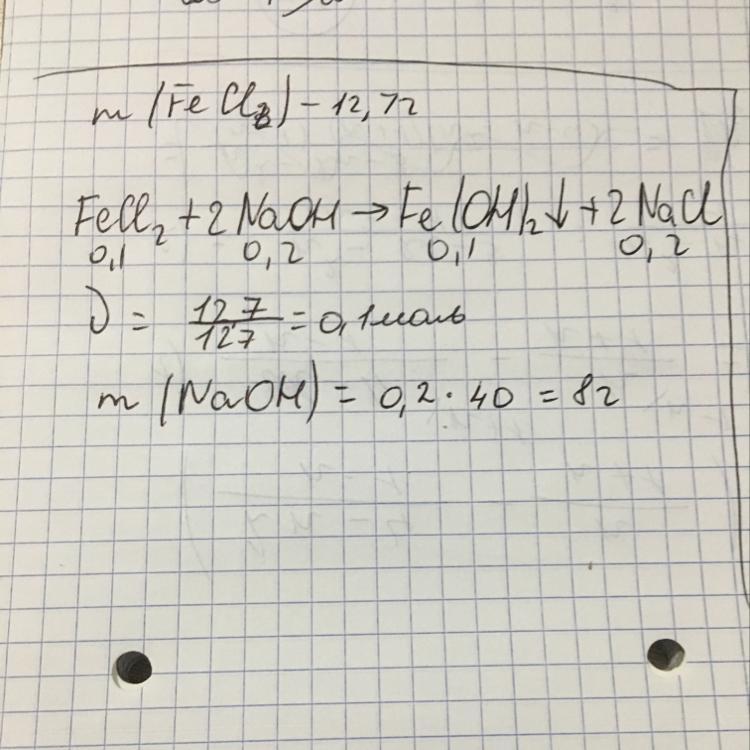 m (FeCl₂) - 12,7г
FeCl₂ + 2NaOH → Fe(OH)₂↓ + 2NaCl
0,1 0,2 0,1 0,2
ν = 127/127 = 0,1моль
m (NaOH) = 0,2 · 40 = 8г